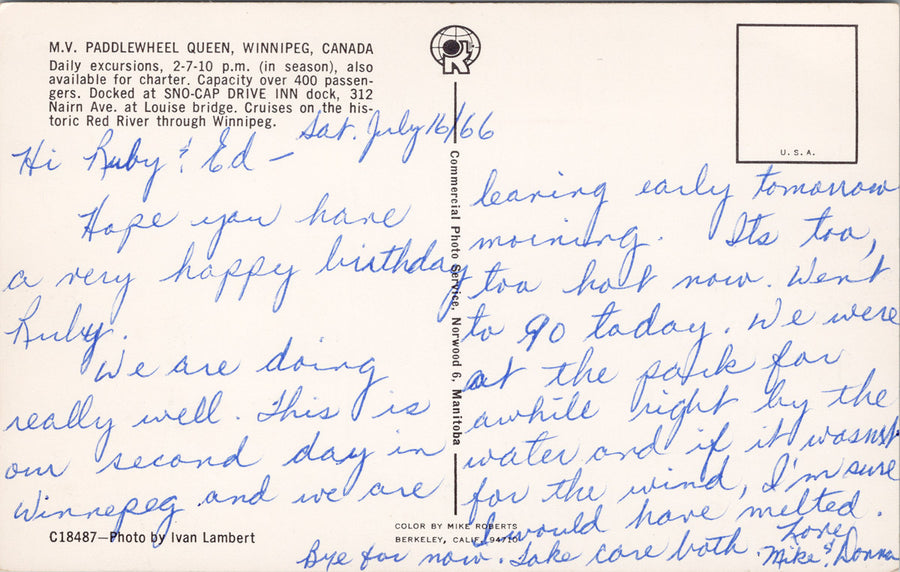 M.V. PADDLEWHEEL QUEEN, WINNIPEG, CANADA
Daily excursions, 2-7-10 p.m. (in season), also
available for charter. Capacity over 400 passen-
gers. Docked at SNO-CAP DRIVE INN dock, 312
Nairn Ave. at Louise bridge. Cruises on the his-
toric Red River through Winnipeg.
Sat. July 16/66
Hi Ruby & Ed —
Hope you have
a very happy birthday
Ruby.
We are doing
really well. This is
our second day in
Winnepeg and we are
leaving early tomorrow
morning. Its too,
too hot now. Went
to 90 today. We were
at the park for
awhile right by the
water and if it wasnt
for the wind, I'm sure
I would have melted.
Bye for now. Take care both.
Love,
Mike & Donna
Commercial Photo Service, Norwood 6, Manitoba
U.S.A.
R
COLOR BY MIKE ROBERTS
BERKELEY, CALIF. 94710
C18487—Photo by Ivan Lambert